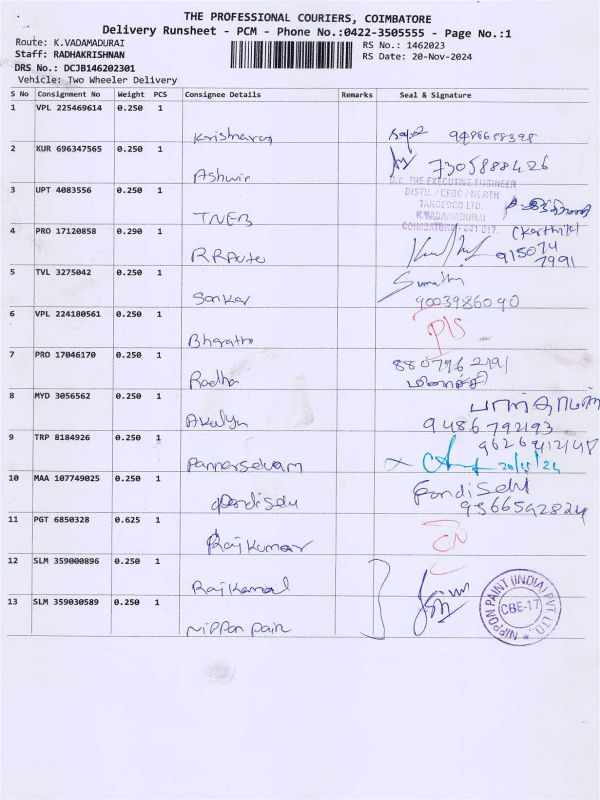 THE PROFESSIONAL COURIERS, COIMBATORE
Delivery Runsheet - PCM - Phone No.:0422-3505555 - Page No.:1
Route: K.VADAMADURAI
RS No.: 1462023
Staff: RADHAKRISHNAN
RS Date: 20-Nov-2024
DRS No.: DCJB146202301
Vehicle: Two Wheeler Delivery
S No Consignment No Weight PCS Consignee Details Remarks Seal & Signature
1 VPL 225469614 0.250 1
2 KUR 696347565 0.250 1
Ashwin 7305888426
3 UPT 4083556 0.250 1
THE EXECUTIVE ENGINEER
DISTN / CEDC / NORTH
TANGEDCO LTD
K.VADAMADURAI
COIMBATORE - 641 017.
TNEB
4 PRO 17120858 0.290 1
(Karthik)
915074
7991
5 TVL 3275042 0.250 1
Sankar 9003986090
6 VPL 224180561 0.250 1
Bharath
7 PRO 17046170 0.250 1
Radha
8 MYD 3056562 0.250 1
Akalya 9486792193
9 TRP 8184926 0.250 1
9626412148
Pannerselvam 20/11/24
10 MAA 107749025 0.250 1
Pandiselu Pandiselu
9566592824
11 PGT 6850328 0.625 1
Rajkumar
12 SLM 359000896 0.250 1
Rajkamal
13 SLM 359030589 0.250 1
Nippon pain
NIPPON PAINT (INDIA) PVT. LTD.
CBE-17